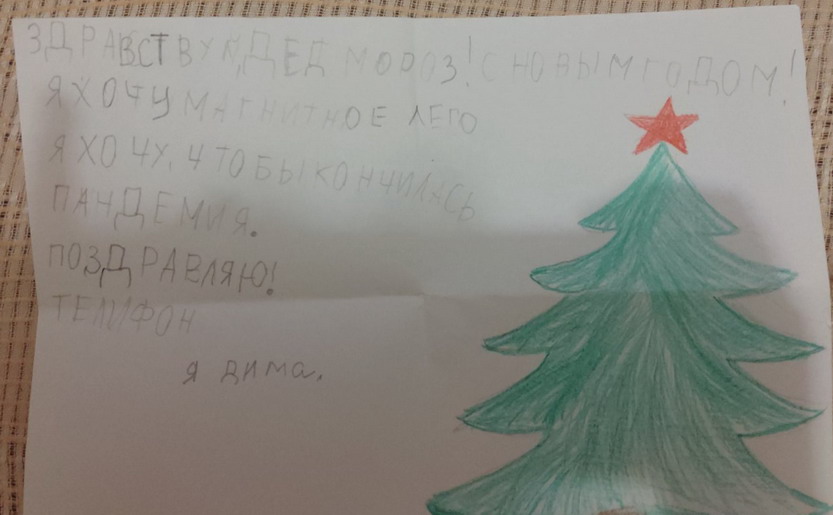 ЗДРАВСТВУЙ, ДЕД МОРОЗ! С НОВЫМ ГОДОМ!
Я ХОЧУ МАГНИТНОЕ ЛЕГО
Я ХОЧУ, ЧТОБЫ КОНЧИЛАСЬ
ПАНДЕМИЯ.
ПОЗДРАВЛЯЮ!
ТЕЛИФОН
я дима.